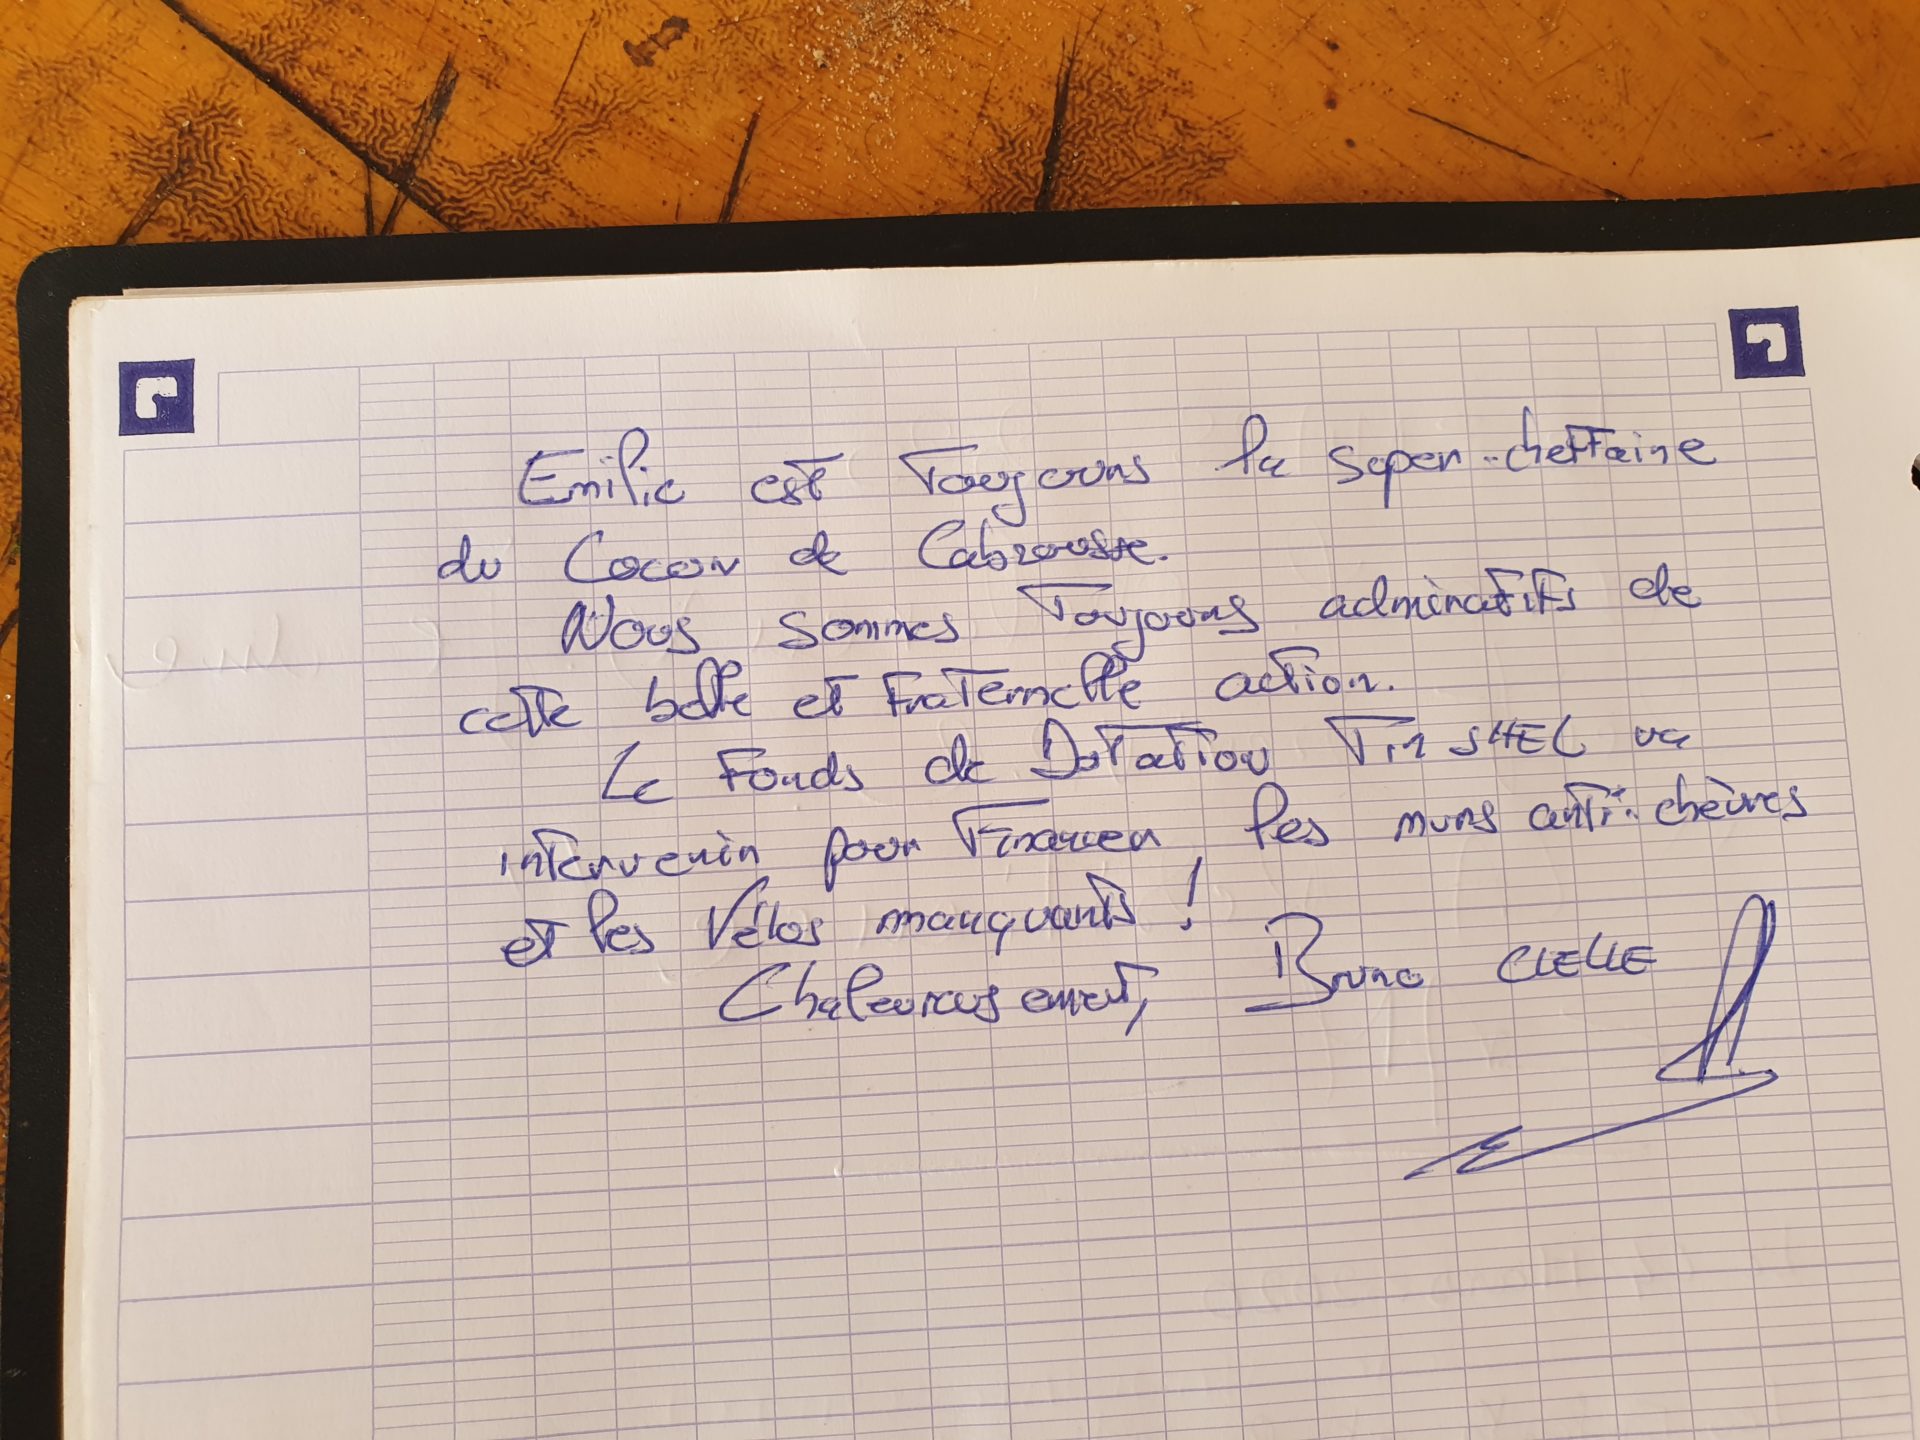 Emilie est Toujours la super-cheffaine
du Cocon de Cabrousse.
Nous sommes Toujours admiratifs de
cette belle et Fraternelle action.
Le Fonds de Dotation TinSHEL va
intervenir pour Financer les murs anti-chèvres
et les Vélos manquants !
Chaleureusement, Bruno CLELLE